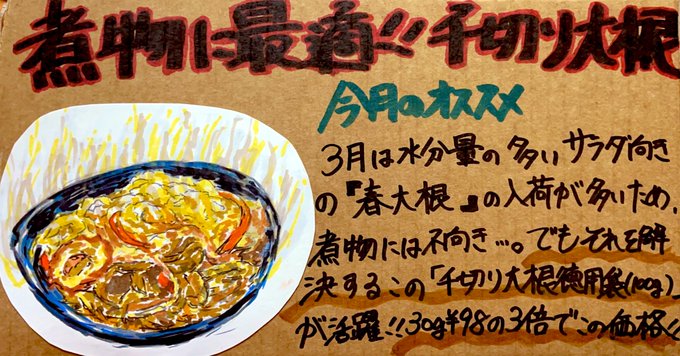 煮物に最適!!千切り大根
今月のオススメ
3月は水分量の多いサラダ向き
の『春大根』の入荷が多いため、
煮物には不向き…。でもそれを解
決するこの「千切り大根徳用袋(100g)」
が活躍!!30g¥98の3倍でこの価格!!